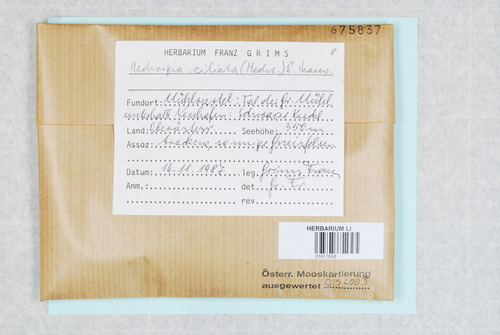 675837
HERBARIUM FRANZ GRIMS 8
Hedwigia ciliata (Hedw.) P. Beauv.
Fundort: Mühlviertel: Tal der Gr. Mühl
unterhalb Neufelden:
Land: Oberösterr. Seehöhe: 350m
Assoz:
Datum: 14.11.1987 leg. Grims Franz
Anm.: det. Gr. Fr.
rev.
HERBARIUM LI
Österr. Mooskartierung
ausgewertet